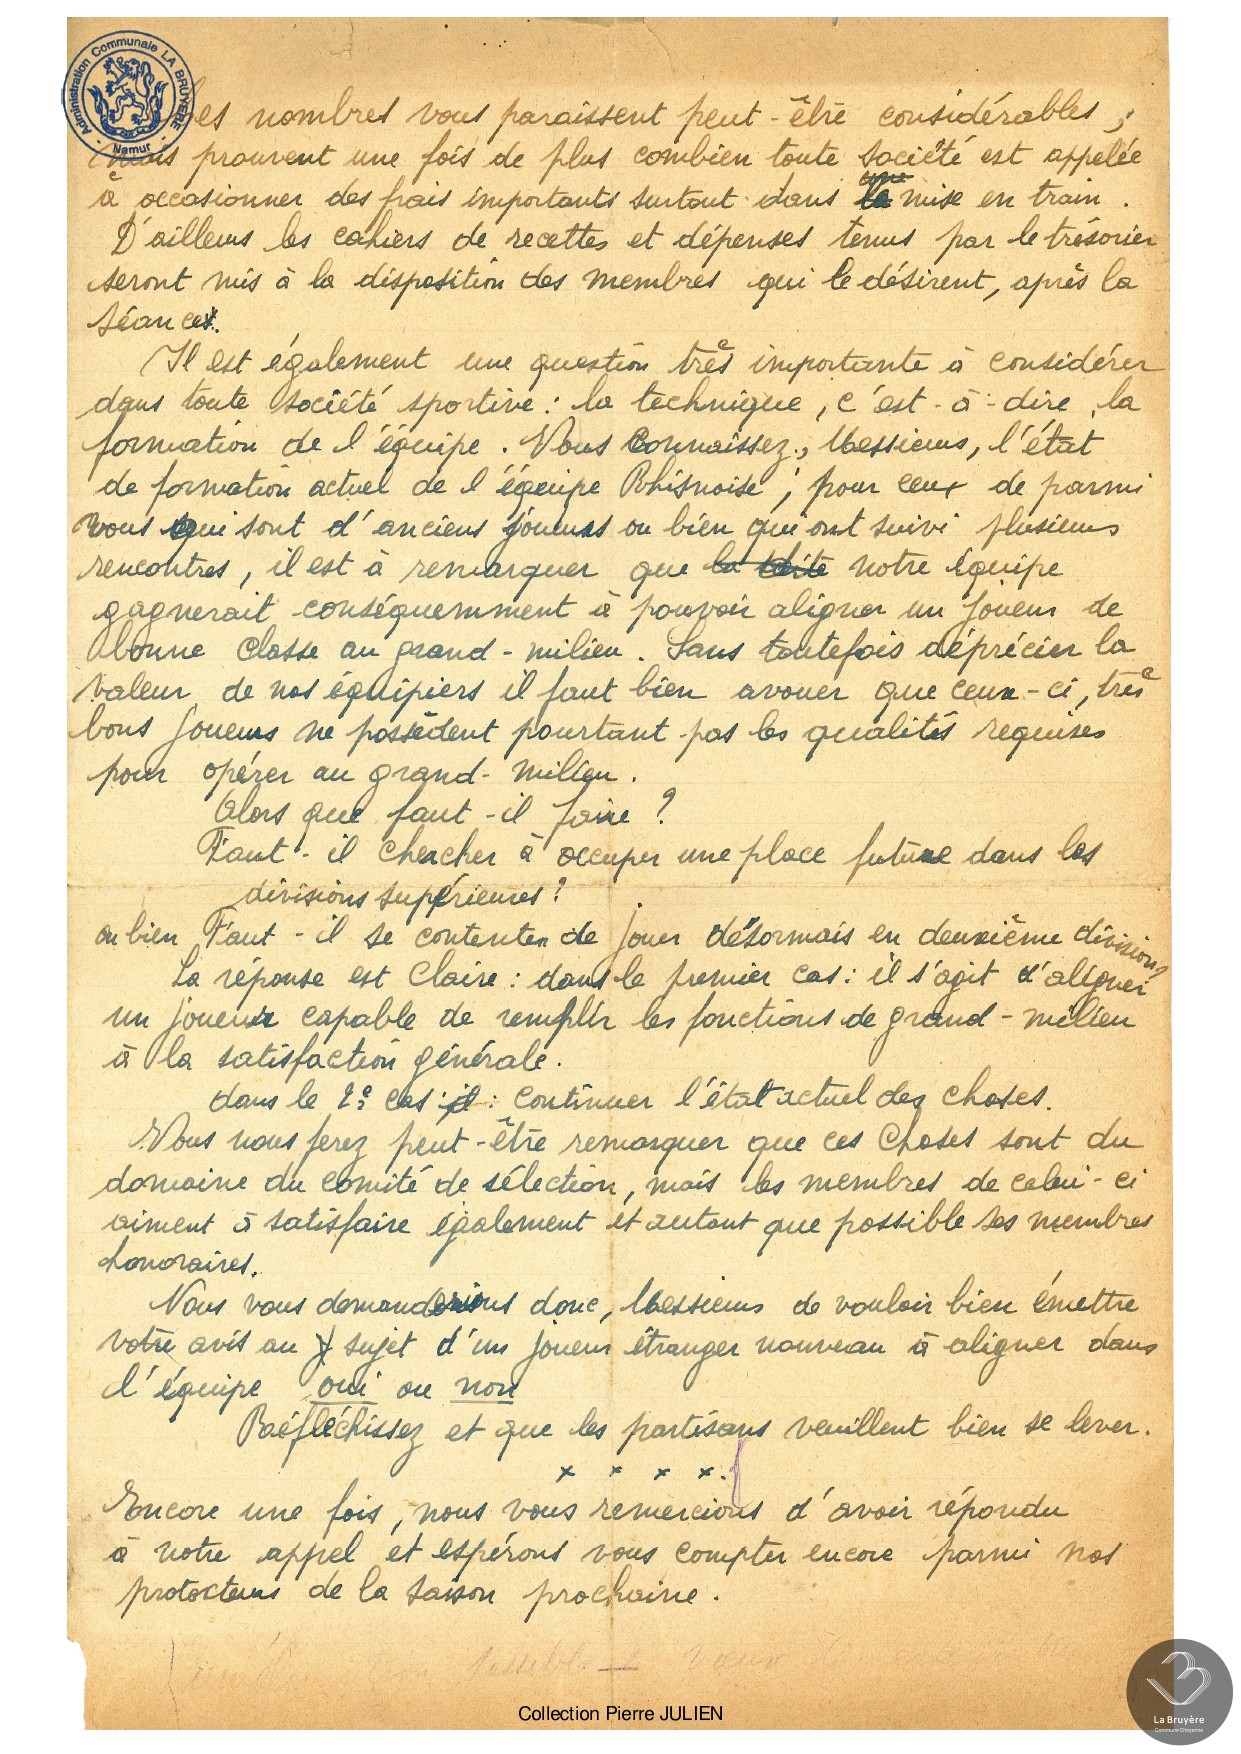 Administration Communale LA BRUYERE
- Namur -
Ces nombres vous paraissent peut-être considérables,
mais prouvent une fois de plus combien toute société est appelée
à occasionner des frais importants surtout dans une la mise en train.
D'ailleurs les cahiers de recettes et dépenses tenus par le trésorier
seront mis à la disposition des membres qui le désirent, après la
séance.
Il est également une question très importante à considérer
dans toute société sportive : la technique, c'est-à-dire, la
formation de l'équipe. Vous connaissez, Messieurs, l'état
de formation actuel de l'équipe Rhisnoise ; pour ceux de parmi
vous qui sont d'anciens joueurs ou bien qui ont suivi plusieurs
rencontres, il est à remarquer que la notre équipe
gagnerait conséquemment à pouvoir aligner un joueur de
bonne classe au grand-milieu. Sans toutefois déprécier la
valeur de nos équipiers il faut bien avouer que ceux-ci, très
bons joueurs ne possèdent pourtant pas les qualités requises
pour opérer au grand-milieu.
Alors que faut-il faire ?
Faut-il chercher à occuper une place future dans les
divisions supérieures ?
ou bien Faut-il se contenter de jouer désormais en deuxième division ?
La réponse est claire : dans le premier cas : il s'agit d'aligner
un joueur capable de remplir les fonctions de grand-milieu
à la satisfaction générale.
dans le 2e cas : il : continuer l'état actuel des choses.
Vous nous ferez peut-être remarquer que ces choses sont du
domaine du comité de sélection, mais les membres de celui-ci
aiment à satisfaire également et autant que possible ses membres
honoraires.
Nous vous demanderions donc, Messieurs de vouloir bien émettre
votre avis au sujet d'un joueur étranger nouveau à aligner dans
l'équipe oui ou non
Réfléchissez et que les partisans veuillent bien se lever.
x x x x.
Encore une fois, nous vous remercions d'avoir répondu
à notre appel et espérons vous compter encore parmi nos
protecteurs de la saison prochaine.
Collection Pierre JULIEN
La Bruyère
Commune Citoyenne